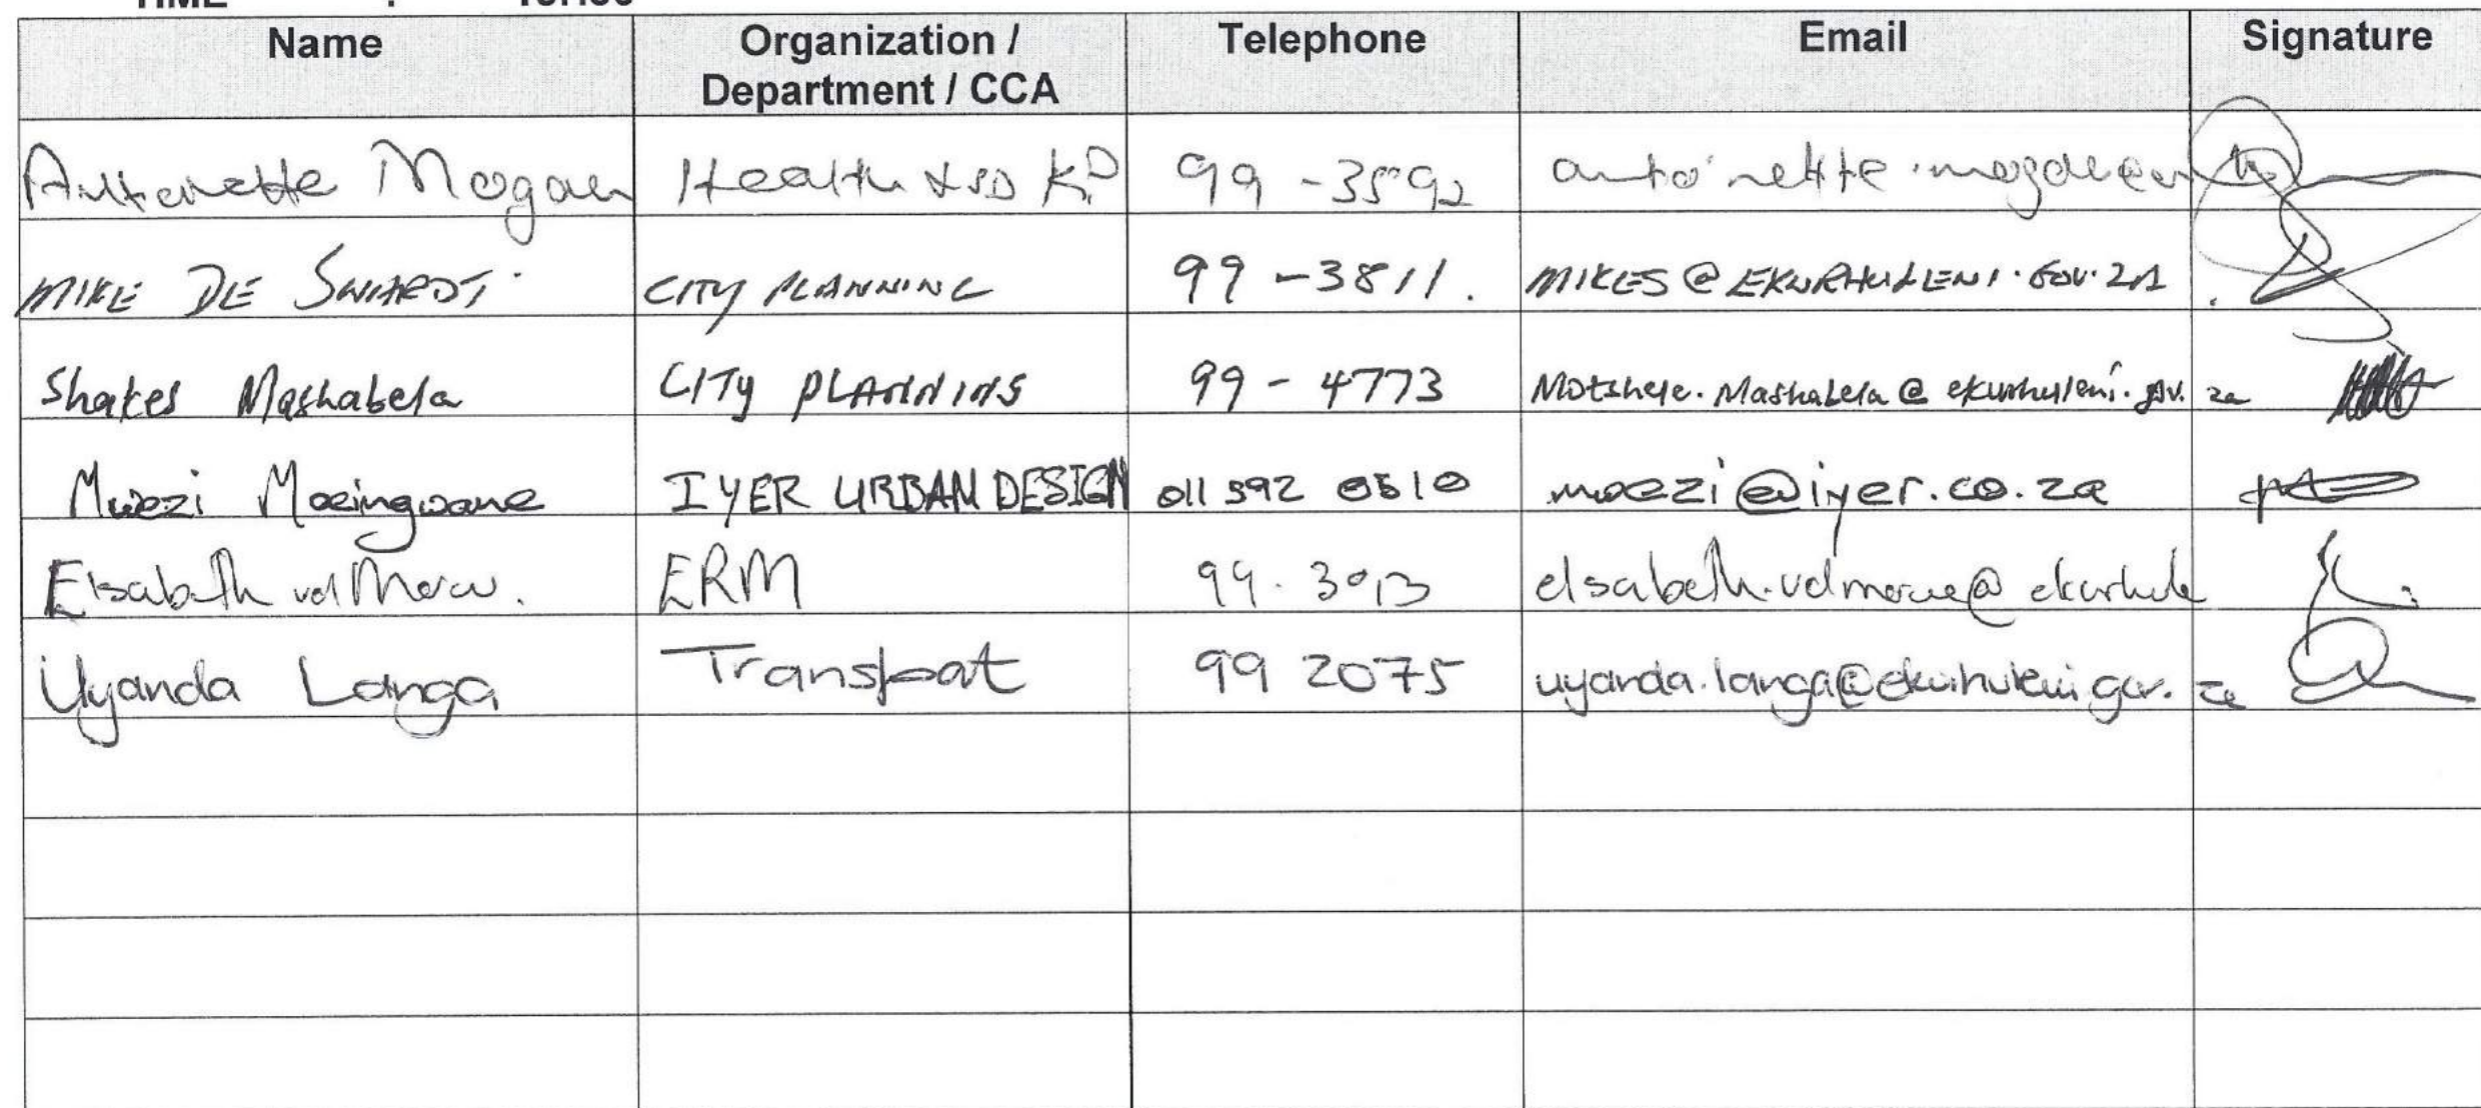 Name Organization / Telephone Email Signature
Department / CCA
Antoinette Mogan Health & SD 99 -3592
MIKE DE SWARDT CITY PLANNING 99 -3811. MIKES@EKURHULENI.GOV.ZA
Shakes Mashabela CITY PLANNING 99 - 4773 Mashabela@ekurhuleni.gov.za
IYER URBAN DESIGN 011 592 0510 mwezi@iyer.co.za
Elsabeth vd Merwe. ERM 99. 3013 elsabeth.vdmerwe@ekurhule
Uyanda Langa Transport 99 2075 uyanda.langa@ekurhuleni.gov.za